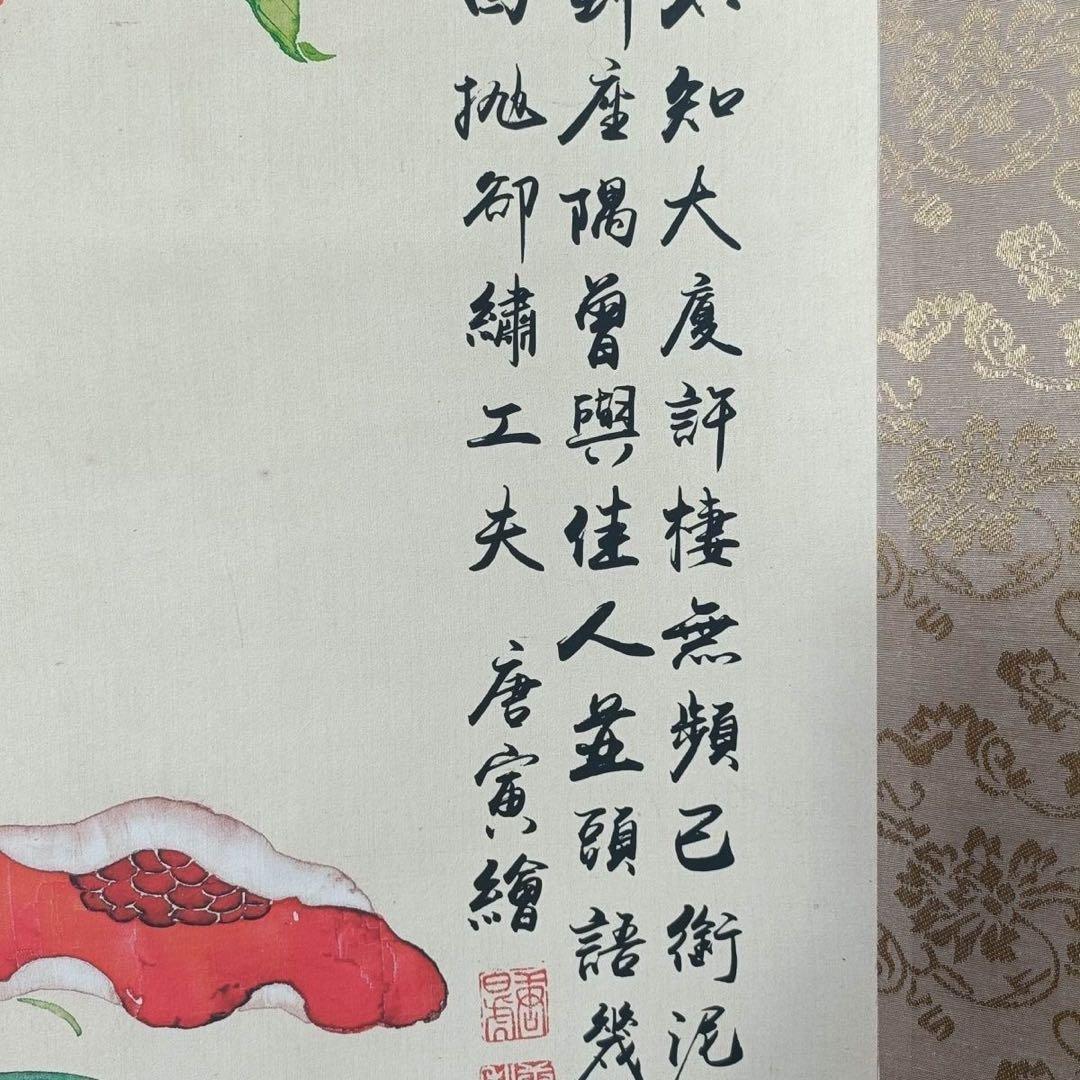 知大廈許棲無頻已銜泥
座隅曾與佳人並頭語幾
拋卻繡工夫
唐寅繪